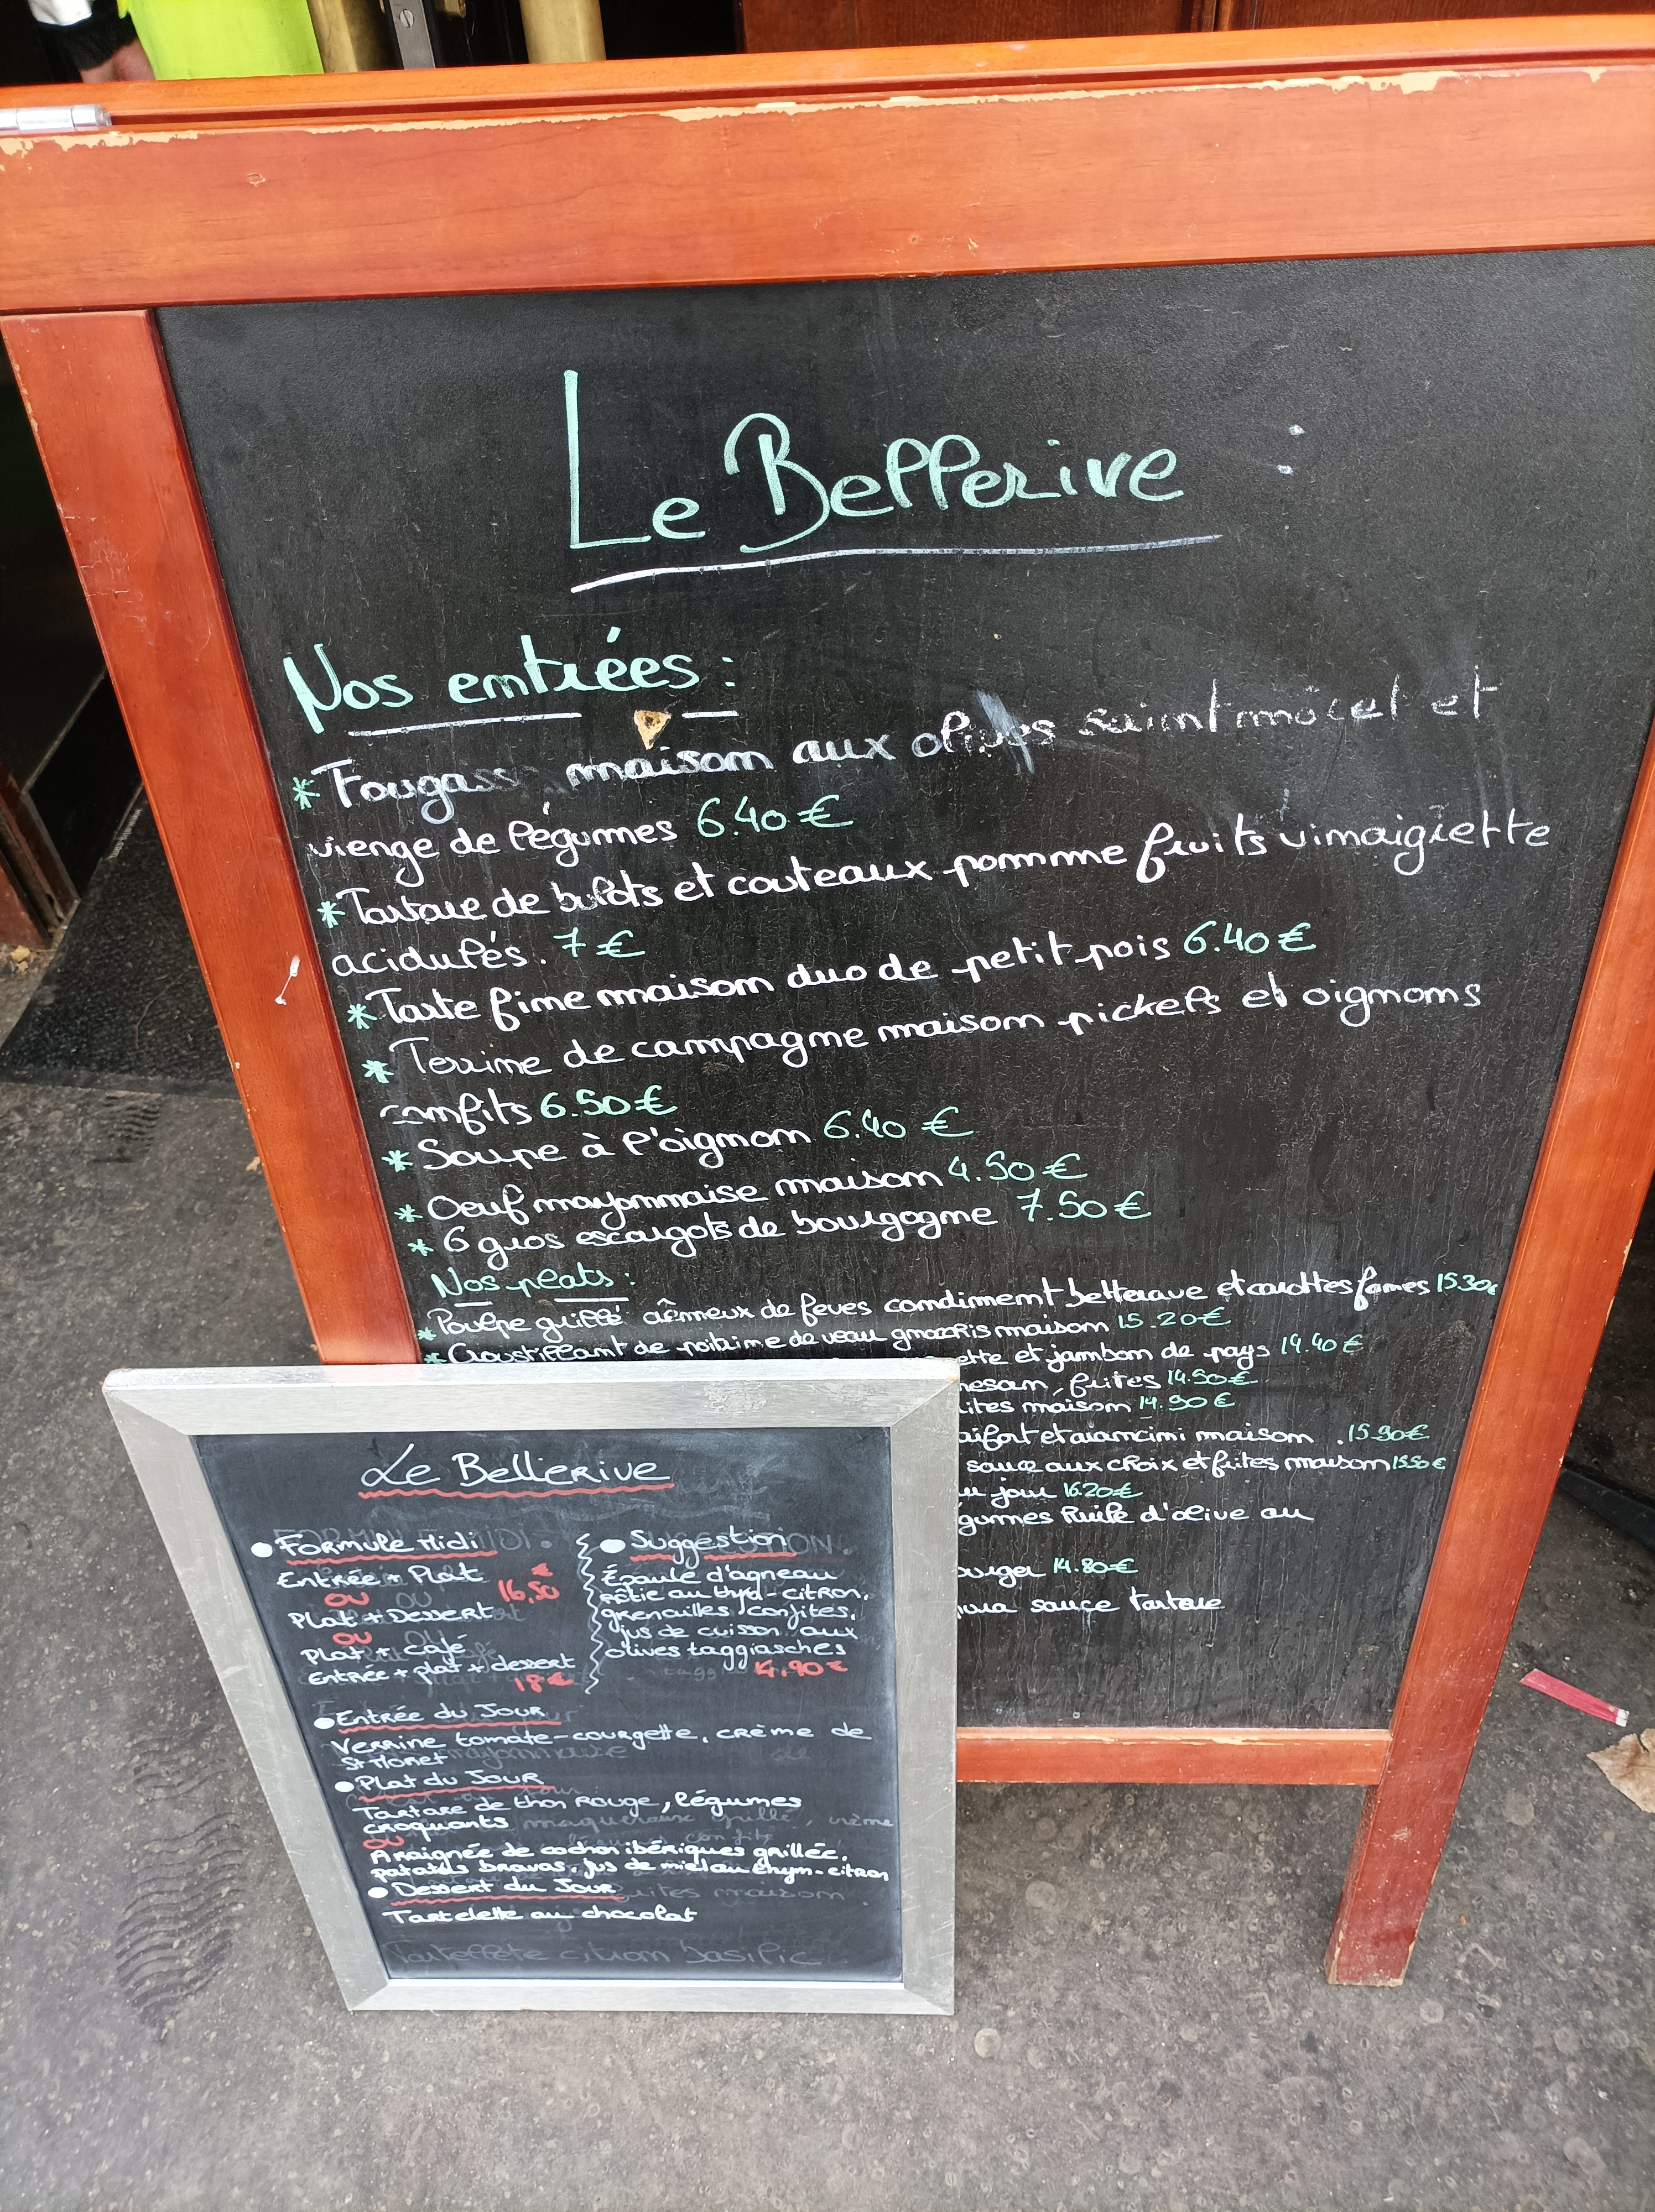 Le Bellerive :
Nos entrées :
* Fougass maison aux olives saint môret et
vierge de légumes 6.40 €
* Tartare de bulots et couteaux pomme fruits vinaigrette
acidulés. 7 €
* Tarte fine maison duo de petit pois 6.40 €
* Terrine de campagne maison pickels et oignons
confits 6.50 €
* Soupe à l'oignon 6.40 €
* Oeuf mayonnaise maison 4.50 €
* 6 gros escargots de bourgogne 7.50 €
Nos plats :
* Poulpe grillé crémeux de feves condiment betterave et carottes fanes 15.30€
* Croustillant de poitrine de veau gnocchis maison 15.20€
ette et jambon de pays 14.40 €
mesan, frites 14.50€
ites maison 14.90 €
aifort et arancini maison . 15.90€
sauce aux choix et frites maison 15.50€
u jour 16.20€
gumes huile d'olive au
burger 14.80€
sauce tartare
Le Bellerive
• Formule Midi
Entrée + Plat €
ou 16,50
Plat + Dessert
ou
Plat + Café
Entrée + plat + dessert
18€
• Suggestion
Épaule d'agneau
rôtie au thym-citron,
grenailles confites,
jus de cuisson aux
olives taggiasches
14.90 €
• Entrée du Jour
Verrine tomate-courgette, crème de
St Moret
• Plat du Jour
Tartare de thon rouge, légumes
croquants
ou
Araignée de cochon ibériques grillée,
patatas bravas, jus de miel au thym-citron
• Dessert du Jour
Tartelette au chocolat
Tartellete citron basilic